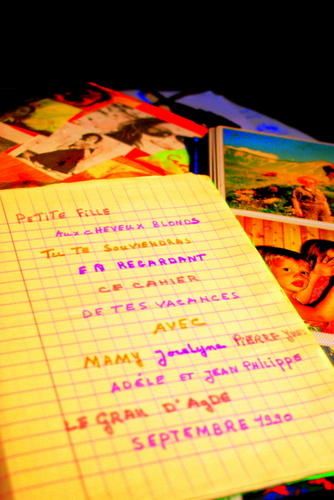 PETITE FILLE
AUX CHEVEUX BLONDS
TU TE SOUVIENDRAS
EN REGARDANT
CE CAHIER
DE TES VACANCES
AVEC
MAMY Jocelyne PIERRE Yves
ADÉLE ET JEAN PHILIPPE
LE GRAU D'AgDE
SEPTEMBRE 1990